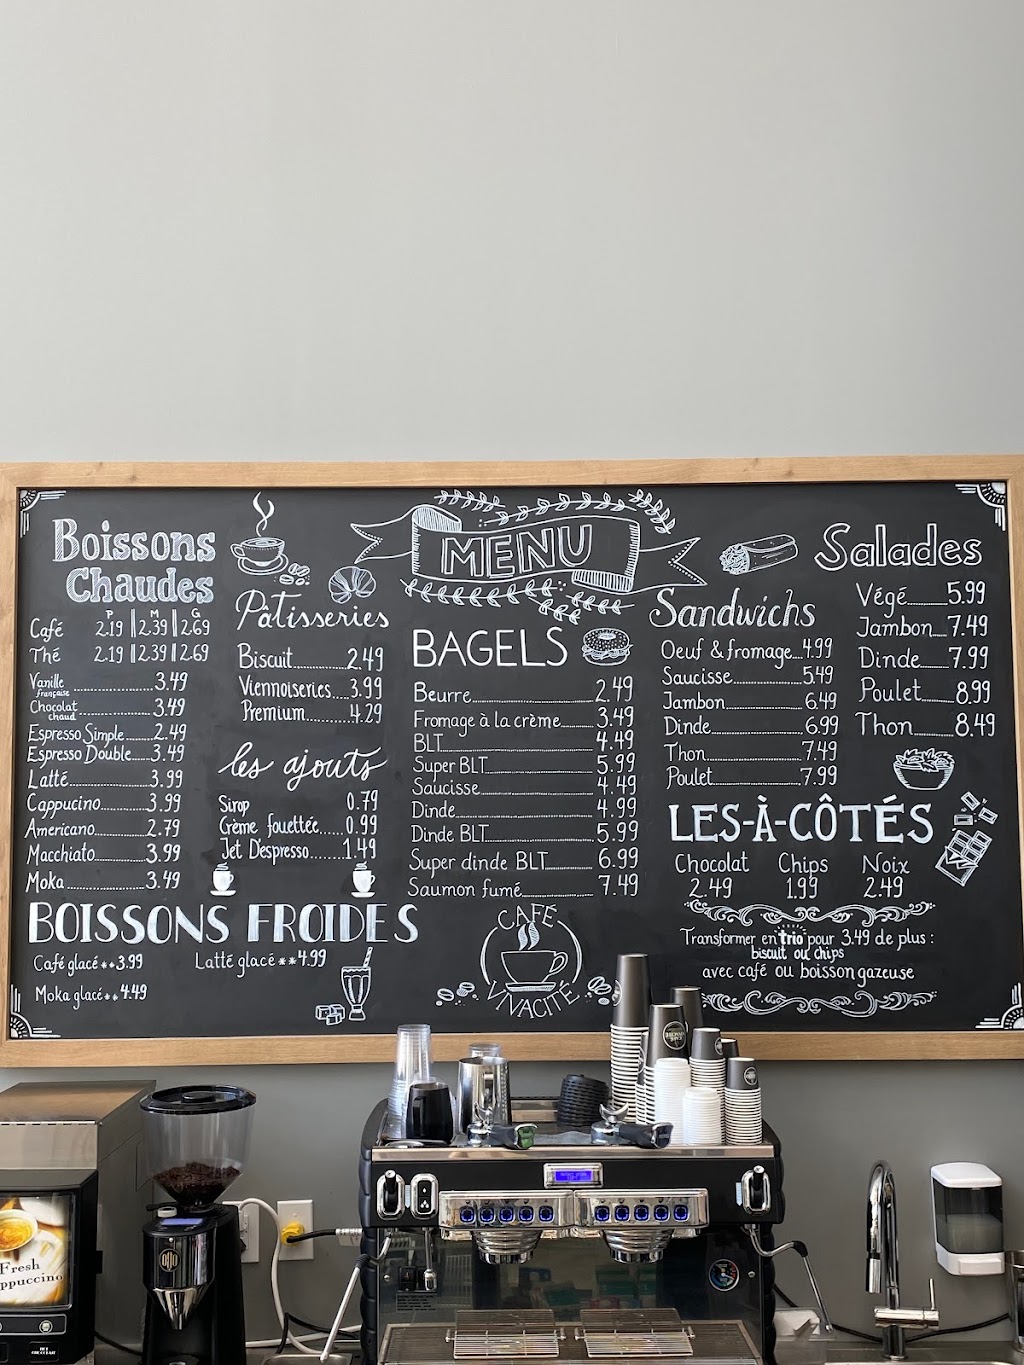 MENU
Boissons
Chaudes
P M G
Café 2.19 | 2.39 | 2.69
Thé 2.19 | 2.39 | 2.69
Vanille française 3.49
Chocolat chaud 3.49
Espresso Simple 2.49
Espresso Double 3.49
Latté 3.99
Cappucino 3.99
Americano 2.79
Macchiato 3.99
Moka 3.49
Pâtisseries
Biscuit 2.49
Viennoiseries 3.99
Premium 4.29
les ajouts
Sirop 0.79
Crème fouettée 0.99
Jet D'espresso 1.49
BOISSONS FROIDES
Café glacé 3.99
Latté glacé 4.99
Moka glacé 4.49
BAGELS
Beurre 2.49
Fromage à la crème 3.49
BLT 4.49
Super BLT 5.99
Saucisse 4.49
Dinde 4.99
Dinde BLT 5.99
Super dinde BLT 6.99
Saumon fumé 7.49
CAFÉ
VIVACITÉ
Sandwichs
Oeuf & fromage 4.99
Saucisse 5.49
Jambon 6.49
Dinde 6.99
Thon 7.49
Poulet 7.99
Salades
Végé 5.99
Jambon 7.49
Dinde 7.99
Poulet 8.99
Thon 8.49
LES-À-CÔTÉS
Chocolat Chips Noix
2.49 1.99 2.49
Transformer en trio pour 3.49 de plus :
biscuit ou chips
avec café ou boisson gazeuse
Fresh
ppuccino